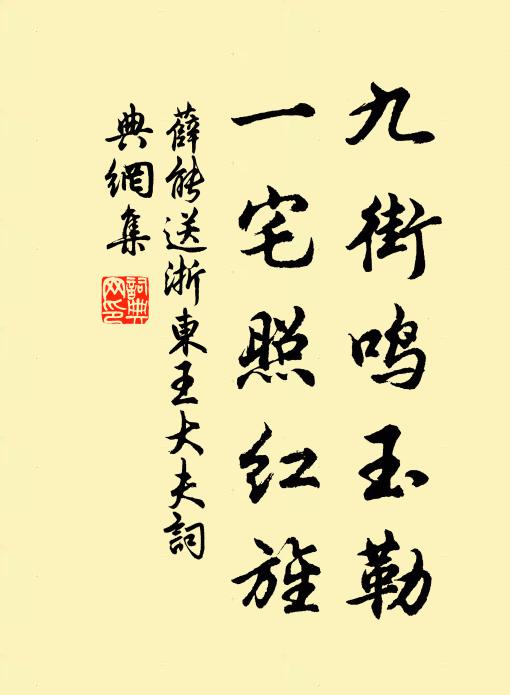 九街鸣玉勒
一宅照红旌
薛能送浙東王大夫詞
典網集
詞典网印